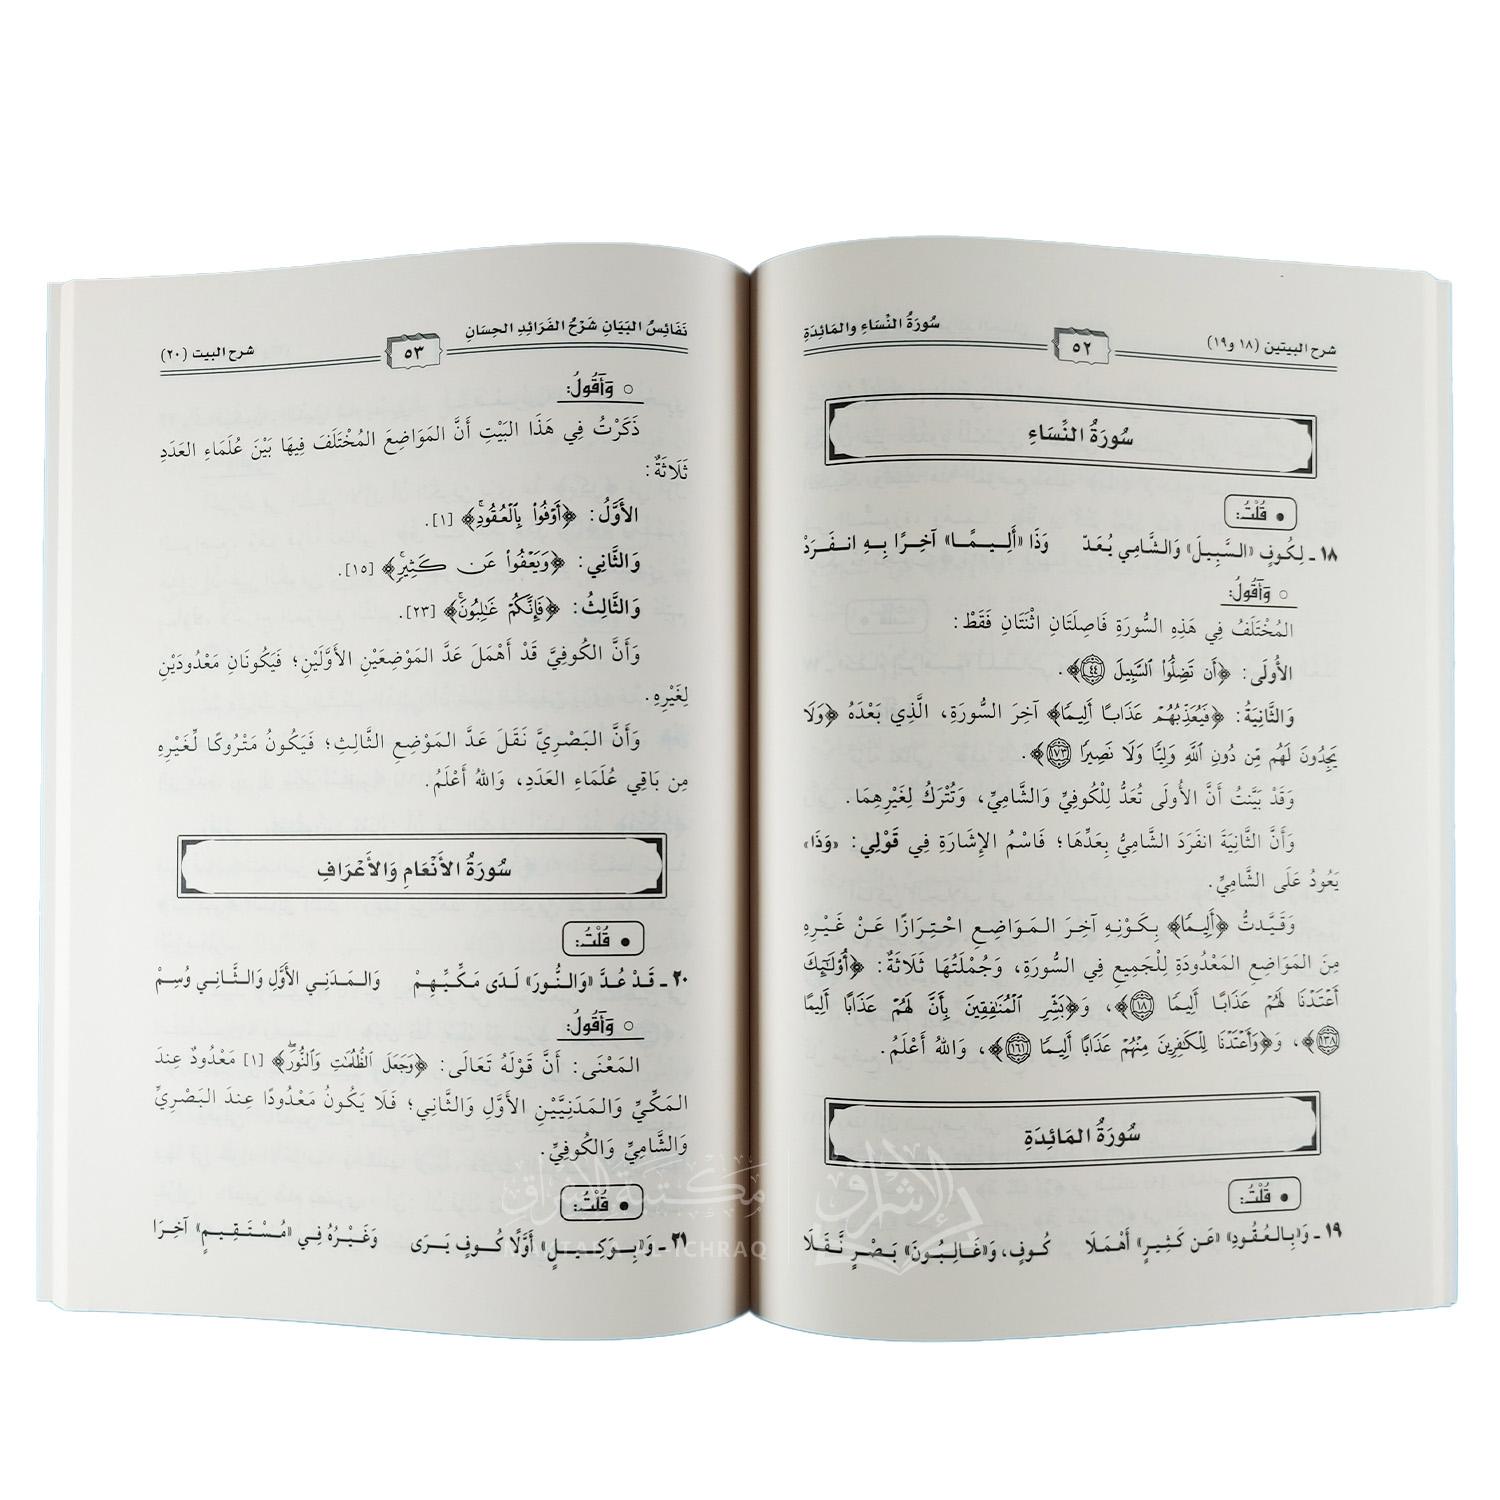 شرح البيتين (١٨ و١٩)
٥٢
سُورَةُ النِّسَاءِ والمَائِدَةِ
سُورَةُ النِّسَاءِ
• قُلْتُ:
١٨ ـ لِكُوفٍ «السَّبِيلَ» وَالشَّامِي يُعَدّ وَذَا «أَلِـيـمًـا» آخِرًا بِـهِ انـفَـرَدْ
○ وَأَقُولُ:
المُخْتَلَفُ فِي هَذِهِ السُّورَةِ فَاصِلَتَانِ اثْنَتَانِ فَقَطْ:
الأُولَى: ﴿أَن تَضِلُّوا۟ ٱلسَّبِيلَ ٤٤﴾.
وَالثَّانِيَةُ: ﴿فَيُعَذِّبُهُمْ عَذَابًا أَلِيمًا﴾ آخِرَ السُّورَةِ، الَّذِي بَعْدَهُ ﴿وَلَا
يَجِدُونَ لَهُم مِّن دُونِ ٱللَّهِ وَلِيًّا وَلَا نَصِيرًا ١٧٣﴾.
وَقَدْ بَيَّنتُ أَنَّ الأُولَى تُعَدُّ لِلْكُوفِيِّ وَالشَّامِيِّ، وَتُتْرَكُ لِغَيْرِهِمَا.
وَأَنَّ الثَّانِيَةَ انفَرَدَ الشَّامِيُّ بِعَدِّهَا؛ فَاسْمُ الإِشَارَةِ فِي قَوْلِي: «وَذَا»
يَعُودُ عَلَى الشَّامِيِّ.
وَقَيَّدتُّ ﴿أَلِيمًا﴾ بِكَوْنِهِ آخِرَ المَوَاضِعِ احْتِرَازًا عَنْ غَيْرِهِ
مِنَ المَوَاضِعِ المَعْدُودَةِ لِلْجَمِيعِ فِي السُّورَةِ، وَجُمْلَتُهَا ثَلَاثَةٌ: ﴿أُو۟لَٰٓئِكَ
أَعْتَدْنَا لَهُمْ عَذَابًا أَلِيمًا ١٨﴾، وَ﴿بَشِّرِ ٱلْمُنَٰفِقِينَ بِأَنَّ لَهُمْ عَذَابًا أَلِيمًا
١٣٨﴾، وَ﴿وَأَعْتَدْنَا لِلْكَٰفِرِينَ مِنْهُمْ عَذَابًا أَلِيمًا ١٦١﴾، وَاللهُ أَعْلَمُ.
سُورَةُ المَائِدَةِ
• قُلْتُ:
١٩ ـ وَ«بِـالـعُـقُودِ» «عَن كَثِيرٍ» أَهْمَلَا كُوفٍ، وَ«غَالِبُونَ» بَصْرٍ نَّقَلَا
نَفَائِسُ البَيَانِ شَرْحُ الفَرَائِدِ الحِسَانِ
٥٣
شرح البيت (٢٠)
○ وَأَقُولُ:
ذَكَرْتُ فِي هَذَا البَيْتِ أَنَّ المَوَاضِعَ المُخْتَلَفَ فِيهَا بَيْنَ عُلَمَاءِ العَدَدِ
ثَلَاثَةٌ:
الأَوَّلُ: ﴿أَوْفُوا۟ بِٱلْعُقُودِ﴾ [١].
وَالثَّانِي: ﴿وَيَعْفُوا۟ عَن كَثِيرٍ﴾ [١٥].
وَالثَّالِثُ: ﴿فَإِنَّكُمْ غَٰلِبُونَ﴾ [٢٣].
وَأَنَّ الكُوفِيَّ قَدْ أَهْمَلَ عَدَّ المَوْضِعَيْنِ الأَوَّلَيْنِ؛ فَيَكُونَانِ مَعْدُودَيْنِ
لِغَيْرِهِ.
وَأَنَّ البَصْرِيَّ نَقَلَ عَدَّ المَوْضِعِ الثَّالِثِ؛ فَيَكُونُ مَتْرُوكًا لِّغَيْرِهِ
مِن بَاقِي عُلَمَاءِ العَدَدِ، وَاللهُ أَعْلَمُ.
سُورَةُ الأَنْعَامِ وَالأَعْرَافِ
• قُلْتُ:
٢٠ ـ قَدْ عُدَّ «وَالنُّورَ» لَدَى مَكِّيِّهِمْ وَالمَدَنِي الأَوَّلِ وَالثَّانِي وُسِمْ
○ وَأَقُولُ:
المَعْنَى: أَنَّ قَوْلَهُ تَعَالَى: ﴿وَجَعَلَ ٱلظُّلُمَٰتِ وَٱلنُّورَ﴾ [١] مَعْدُودٌ عِندَ
المَكِّيِّ وَالمَدَنِيَّيْنِ الأَوَّلِ وَالثَّانِي؛ فَلَا يَكُونُ مَعْدُودًا عِندَ البَصْرِيِّ
وَالشَّامِيِّ وَالكُوفِيِّ.
• قُلْتُ:
٢١ ـ وَ«بِـوَكِـيـلٍ» أَوَّلًا كُـوفٍ يَـرَى وَغَيْرُهُ فِي «مُسْتَقِيمٍ» آخِرَا
مكتبة الإشراق
الإشراق